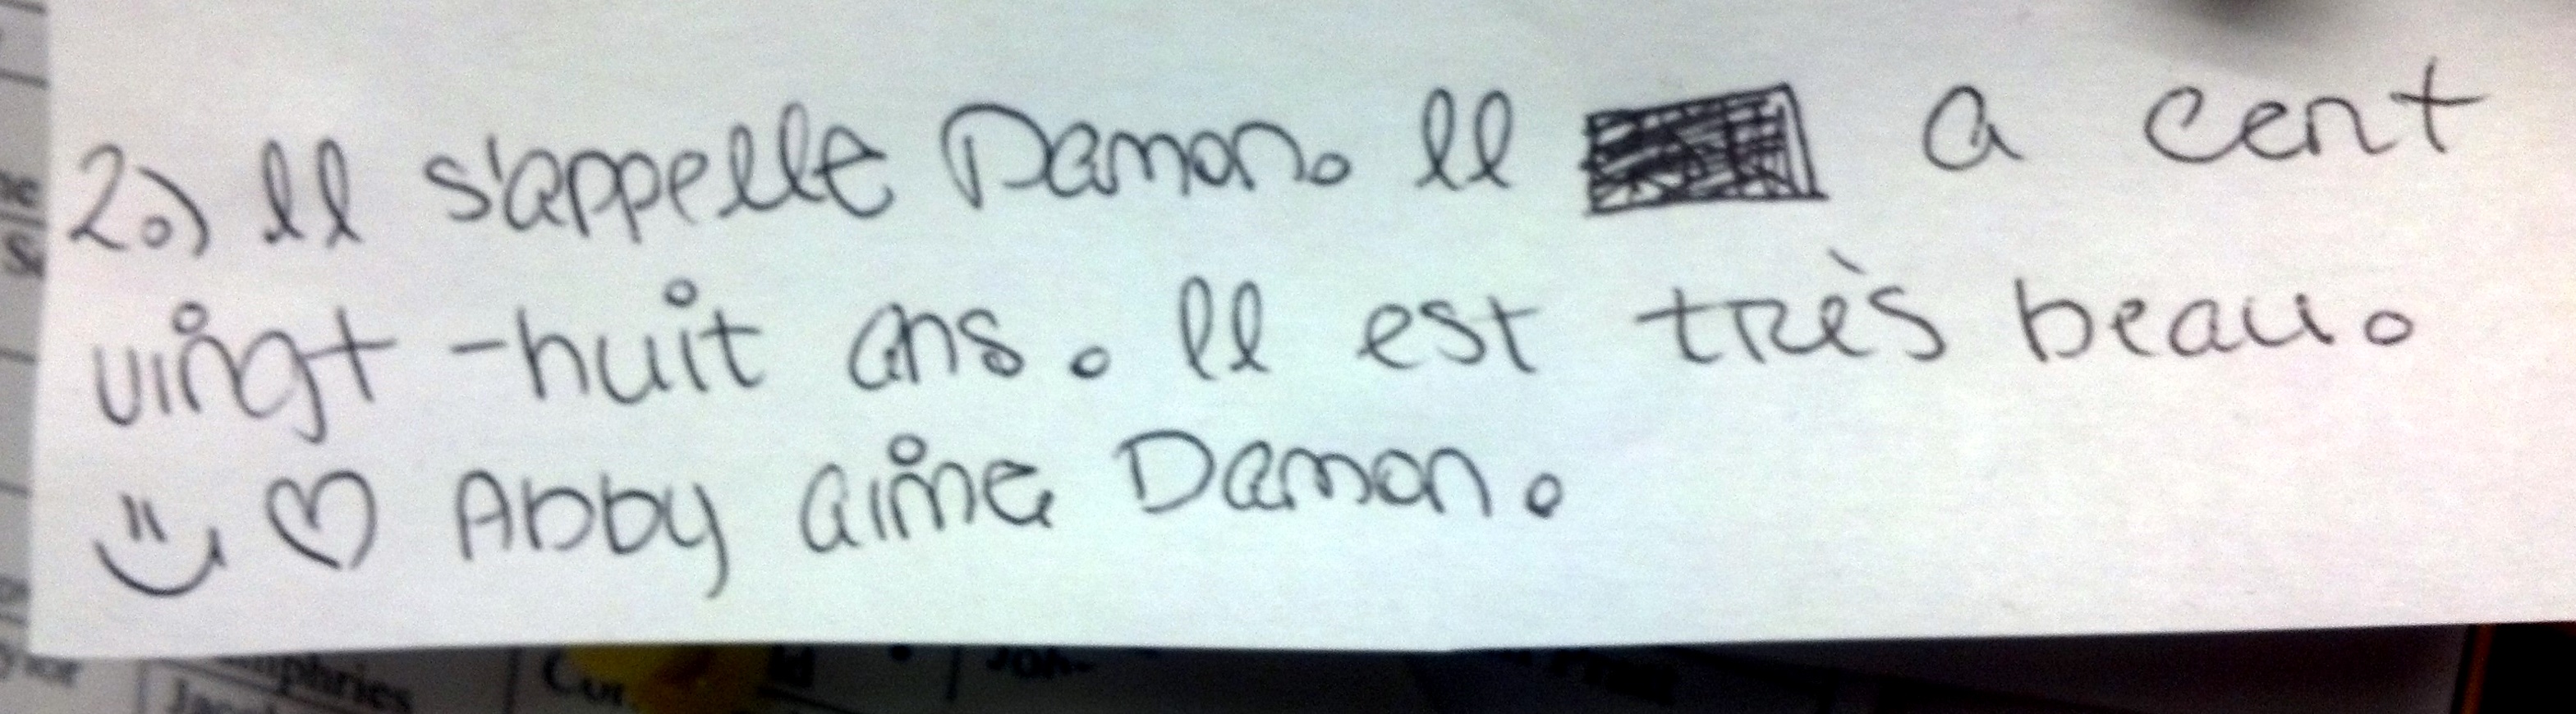 2.) Il s'appelle Damon. Il a cent
vingt-huit ans. Il est très beau.
Abby aime Damon.
mphries